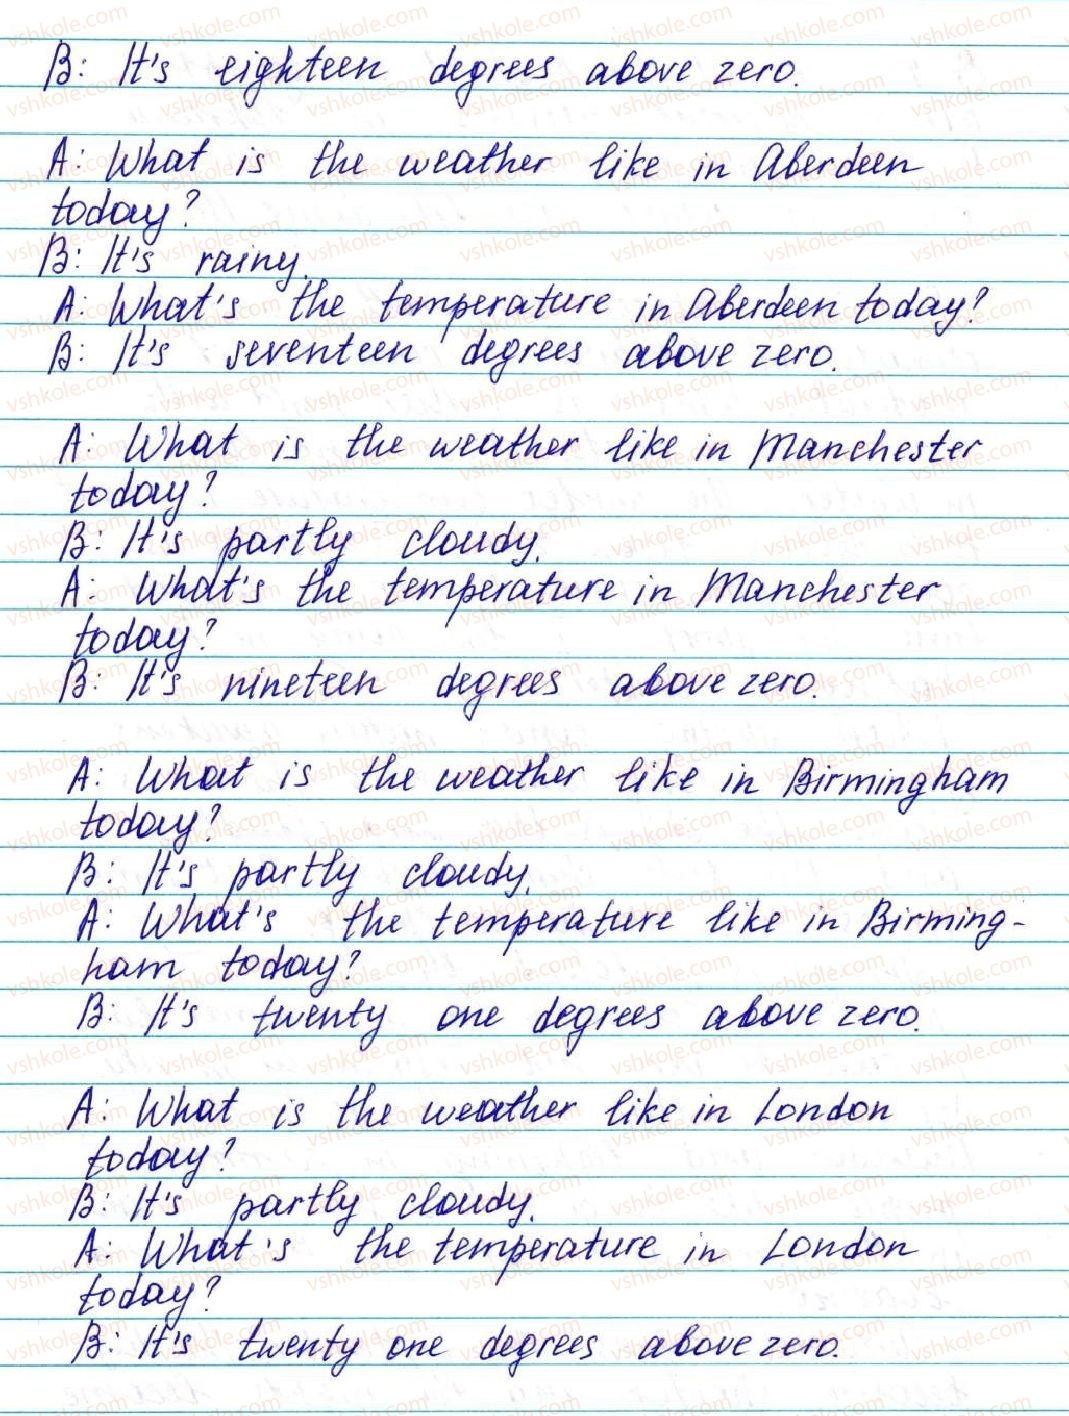 B: It's eighteen degrees above zero.
A: What is the weather like in Aberdeen
today?
B: It's rainy.
A: What's the temperature in Aberdeen today?
B: It's seventeen degrees above zero.
A: What is the weather like in Manchester
today?
B: It's partly cloudy.
A: What's the temperature in Manchester
today?
B: It's nineteen degrees above zero.
A: What is the weather like in Birmingham
today?
B: It's partly cloudy.
A: What's the temperature like in Birming-
ham today?
B: It's twenty one degrees above zero.
A: What is the weather like in London
today?
B: It's partly cloudy.
A: What's the temperature in London
today?
B: It's twenty one degrees above zero.